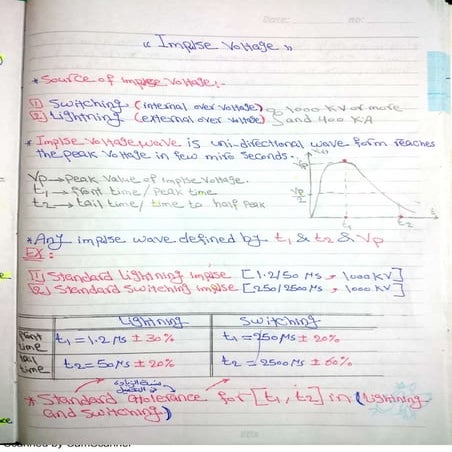 Date: No:
" Implse Voltage "
* Source of impulse Voltage:-
[1] Switching (internal over voltage) 1000 KV or more
[2] Lightning (external over voltage) and 400 KA
* Implse Voltage wave is uni-directional wave form reaches
the peak Voltage in few miro seconds.
Vp → peak value of implse voltage.
t1 → front time / peak time
t2 → tail time / time to half peak
Vp
Vp/2
t1
t2
t
* Any implse wave defined by t1 & t2 & Vp
EX:
[1] Standard lightning implse [1.2/50 Ms, 1000 KV]
[2] Standard Switching implse [250/2500 Ms, 1000 KV]
Lightning Switching
front time t1 = 1.2 Ms ± 30% t1 = 250 Ms ± 20%
tail time t2 = 50 Ms ± 20% t2 = 2500 Ms ± 60%
* Standard atolerance for [t1, t2] in (Lightning
and Switching)
Scanned by CamScanner